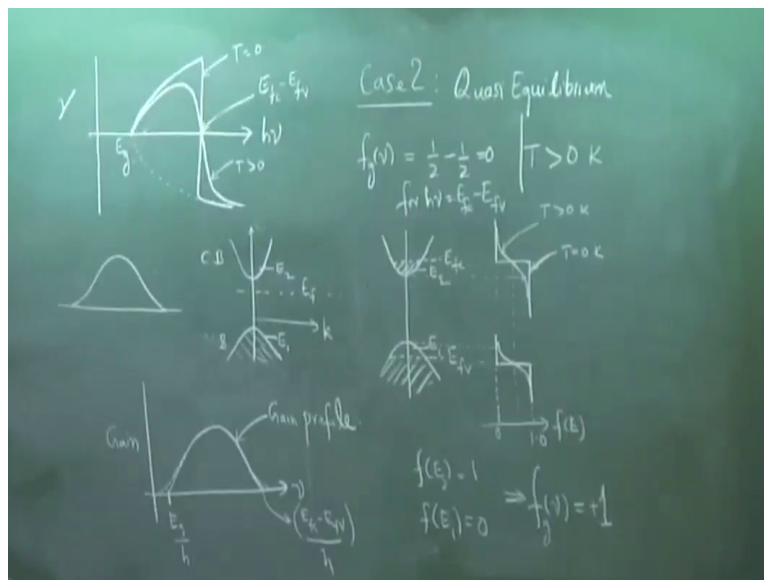 γ
T=0
E_fc-E_fv
hν
E_g
T>0
Case 2: Quasi Equilibrium
f_g(ν) = 1/2 - 1/2 = 0
T > 0 K
for hν = E_fc - E_fv
T>0 K
T=0 K
C.B
E_2
E_f
k
E_1
E_fc
E_2
E_1
E_fv
0
1.0
f(E)
Gain
Gain profile
ν
E_g/h
(E_fc-E_fv)/h
f(E_2) = 1
f(E_1) = 0
⇒ f_g(ν) = +1